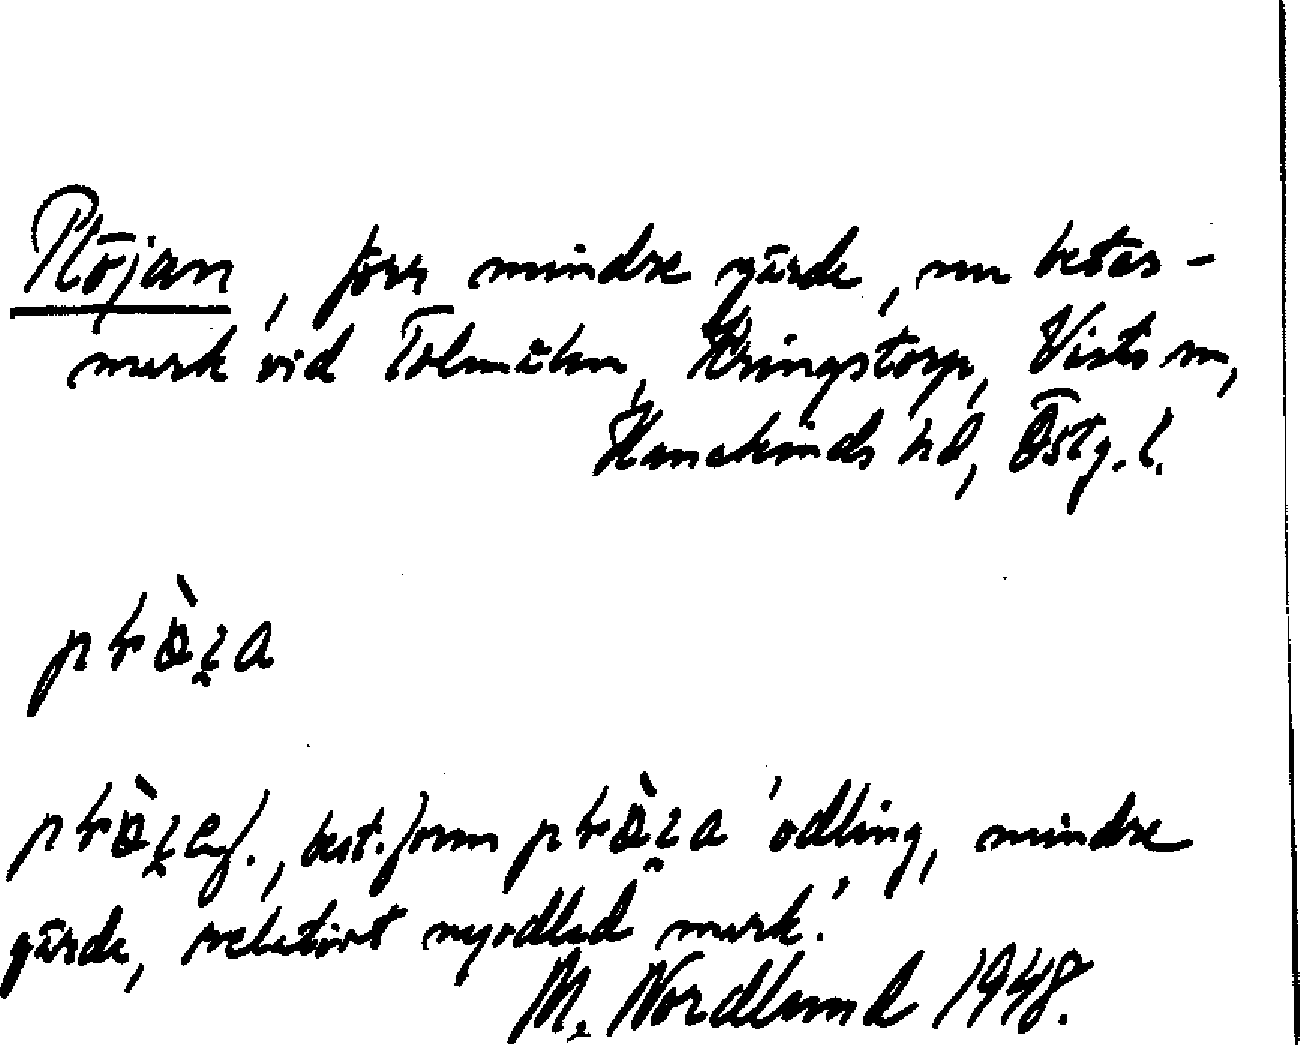 Plöjan, förr mindre gärde, nu betes-
mark vid Kringstorp, Vists sn,
Hanekinds hd, Östg. l.
f., best. form 'odling, mindre
gärde, relativt nyodlad mark'.
M. Nordlund 1948.